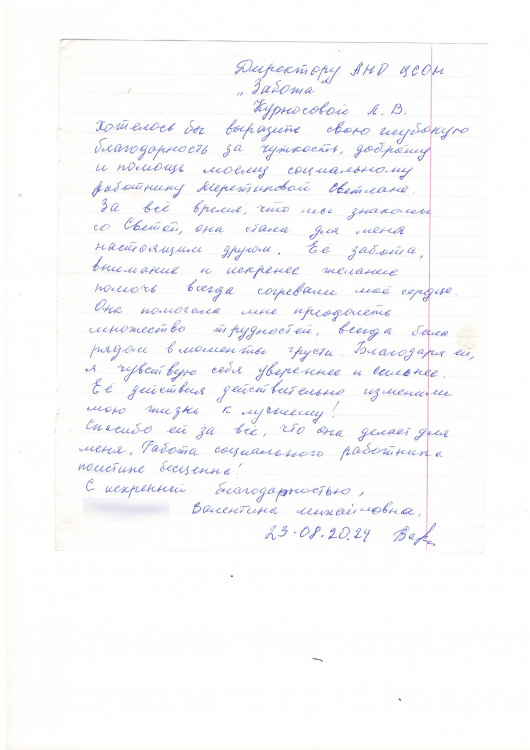 Директору АНО ЦСОН
„Забота"
Курносовой Л. В.
Хотелось бы выразить свою глубокую
благодарность за чуткость, доброту
и помощь моему социальному
работнику Светлане.
За всё время, что мы знакомы
со Светой, она стала для меня
настоящим другом. Её забота,
внимание и искренее желание
помочь всегда согревали моё сердце.
Она помогала мне преодолеть
множество трудностей, всегда была
рядом в моменты грусти. Благодаря ей,
я чувствую себя увереннее и сильнее.
Её действия действительно изменили
мою жизнь к лучшему!
Спасибо ей за всё, что она делает для
меня. Работа социального работника
поистине бесценна!
С искренней благодарностью,
Валентина Михайловна.
23.08.2024